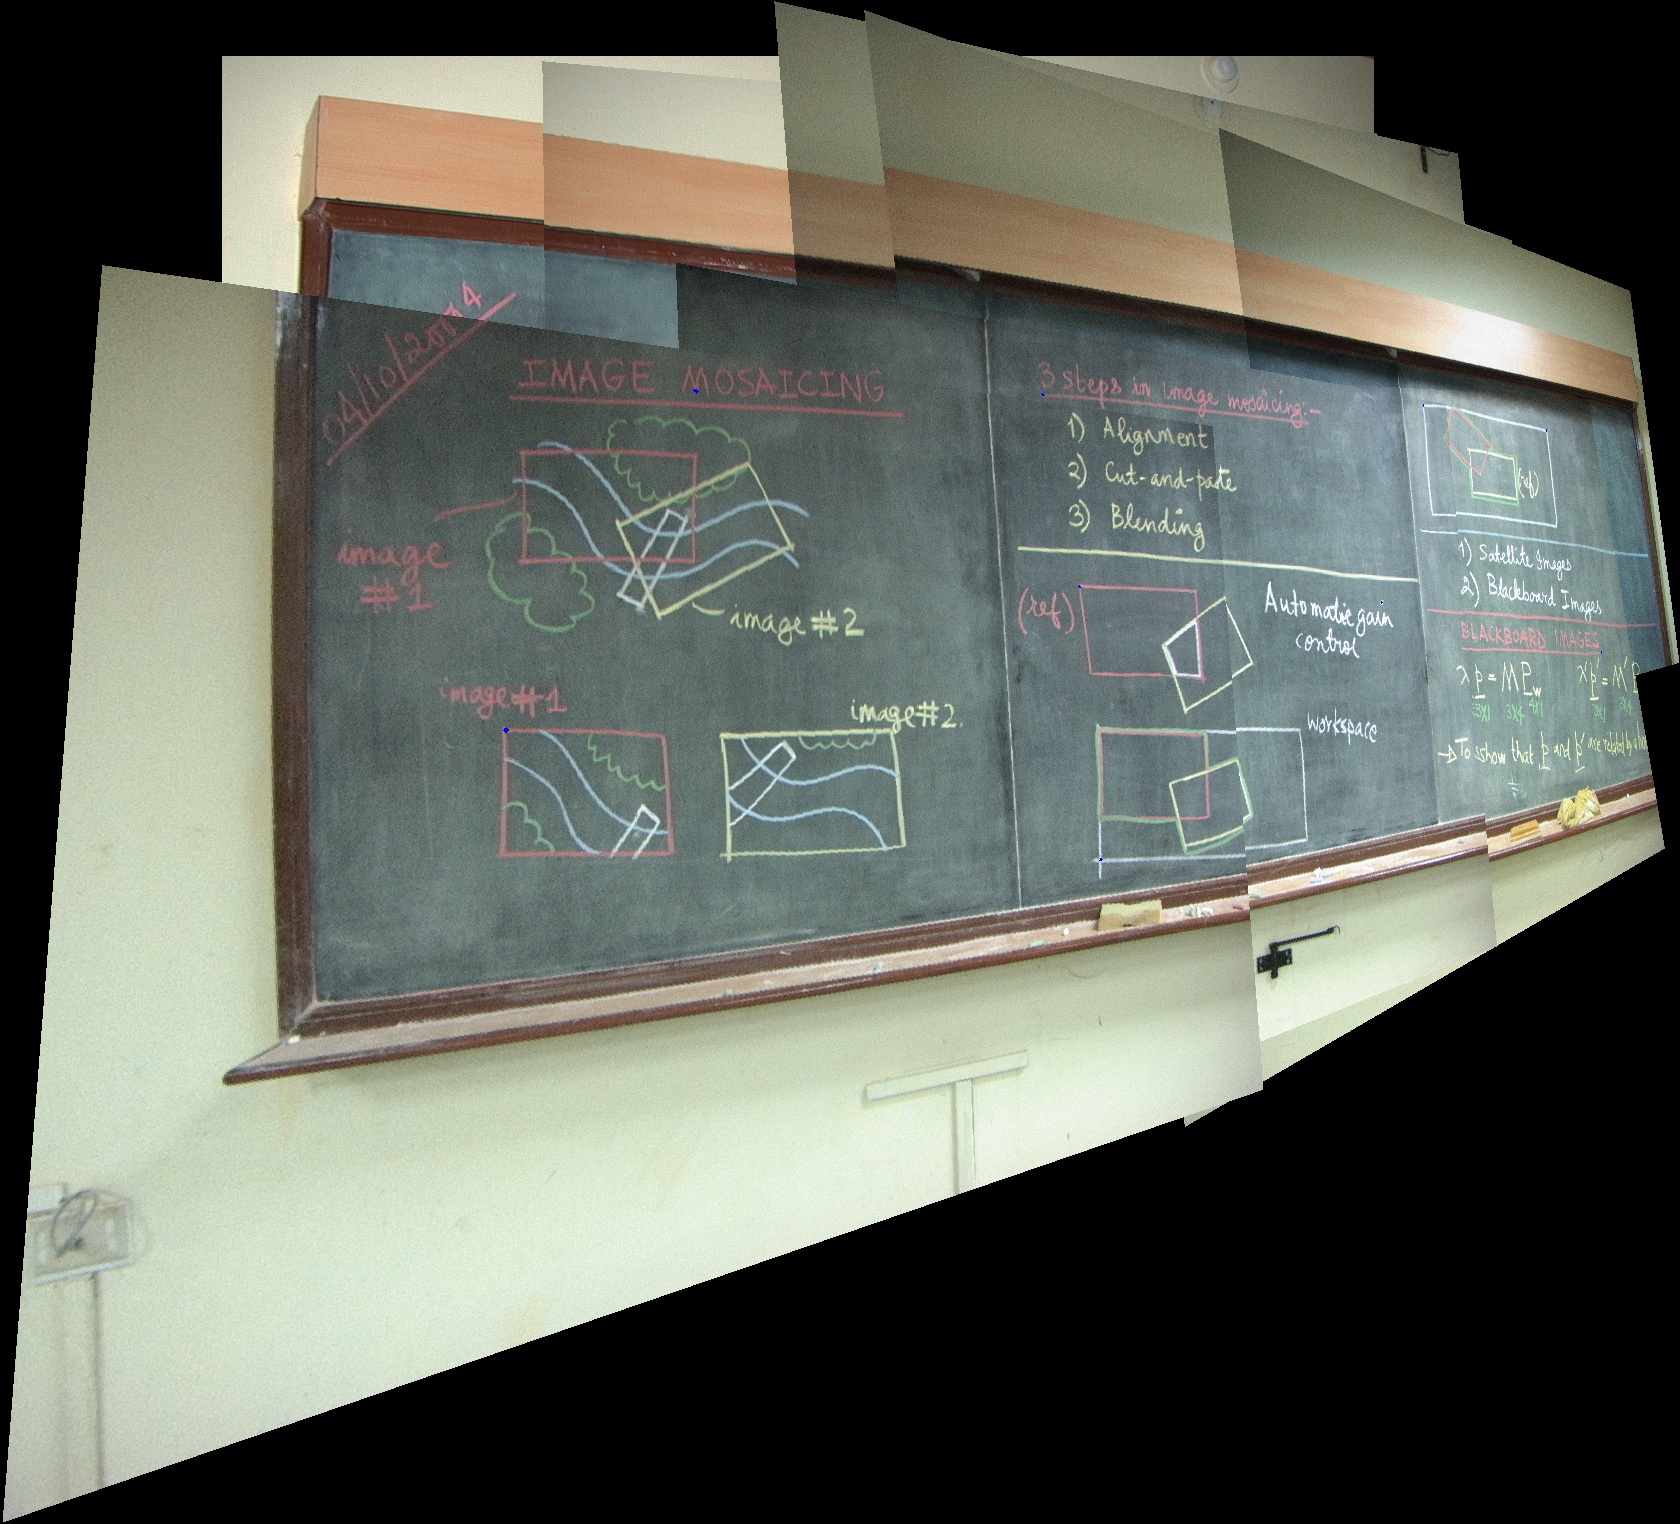 04/10/2004
IMAGE MOSAICING
image
#1
image #2
image #1
image #2.
3 steps in image mosaicing:-
1) Alignment
2) Cut-and-paste
3) Blending
(ref)
Automatic gain
control
workspace
(ref)
1) Satellite Images
2) Blackboard Images
BLACKBOARD IMAGES
λ p = M P_w λ' p' = M' P
3x1 3x4 4x1 3x1 3x4
→ To show that p and p' are related by a